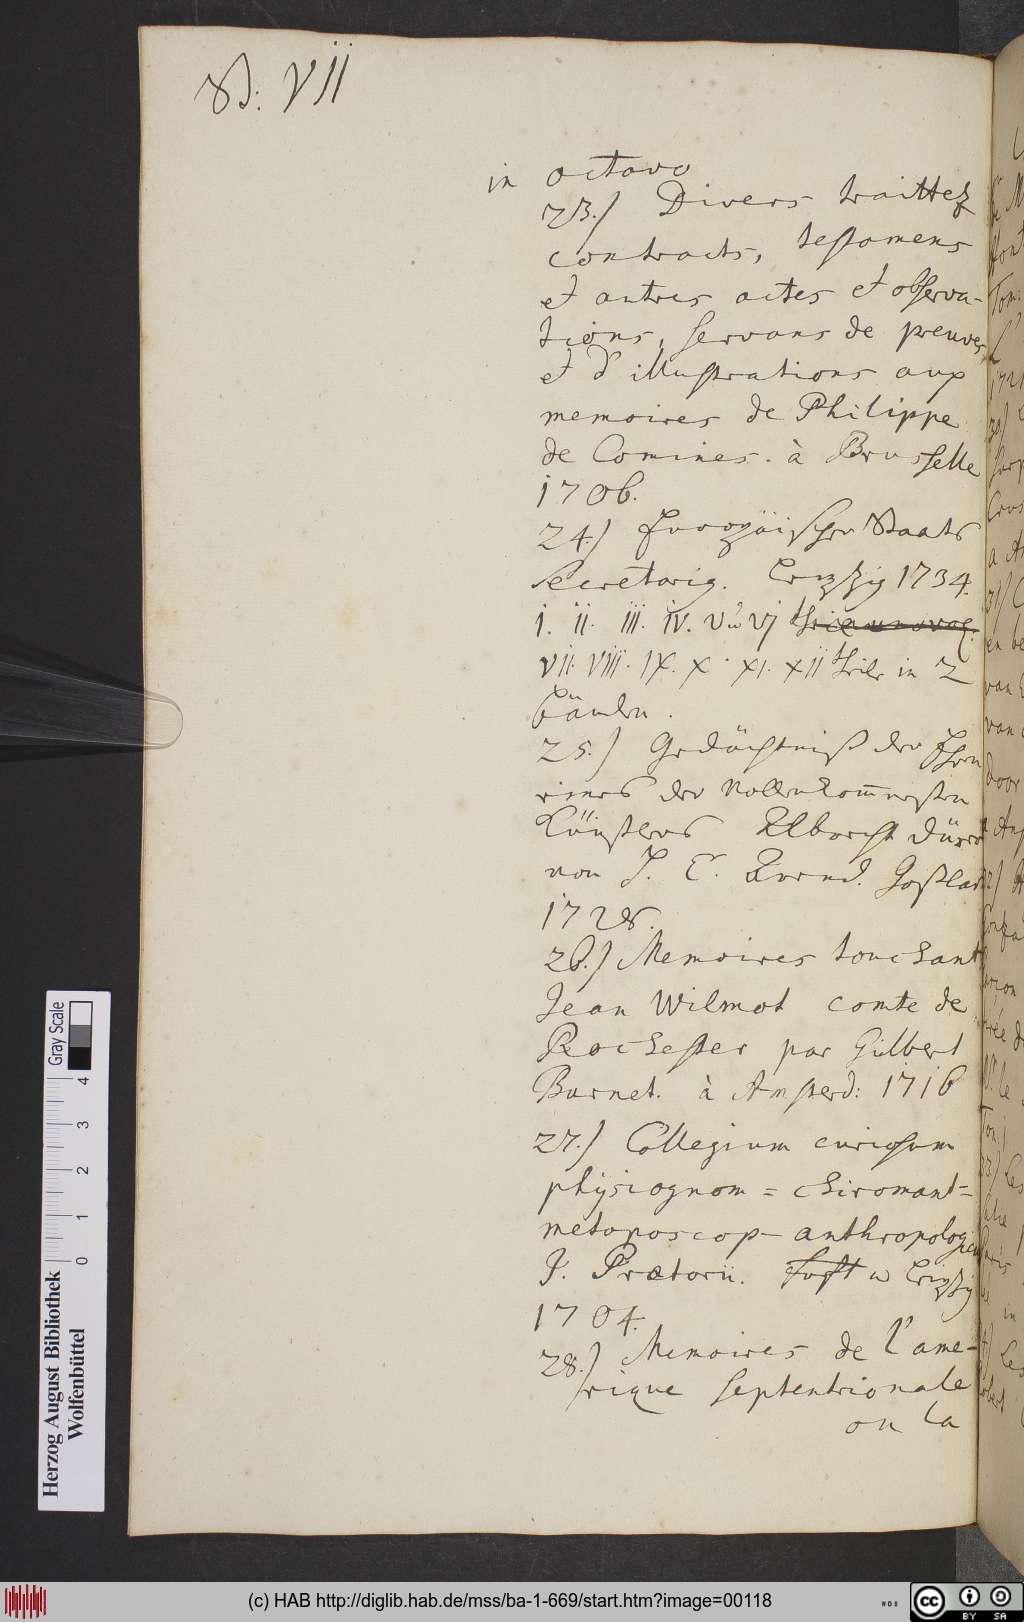 B: VII
in octavo
23.) Divers traittez
contracts, testamens
et autres actes et observa-
tions, servans de preuves
et d'illustrations aux
memoires de Philippe
de Comines. à Brusselle
1706.
24.) Europäischer Staats
Secretarig. Leipzig 1734.
I. II. III. IV. V u VI
VII. VIII. IX. X. XI. XII theile in 2
bänden.
25.) Gedächtniß der Ehren
eines der vollenkom̅nesten
Künstlers Albrecht Dürer
von J. C. Arend. Goßlar
1728.
26.) Memoires touchant
Jean Wilmot comte de
Rochester par Gilbert
Burnet. à Amsterd: 1716
27.) Collegium curiosum
physiognom = chiromant=
metoposcop- anthropologicum
J. Prætorii. u Leipzig
1704.
28.) Memoires de l'ame-
rique septentrionale
ou la
Herzog August Bibliothek
Wolfenbüttel
Gray Scale
0 1 2 3 4
(c) HAB http://diglib.hab.de/mss/ba-1-669/start.htm?image=00118
cc BY SA